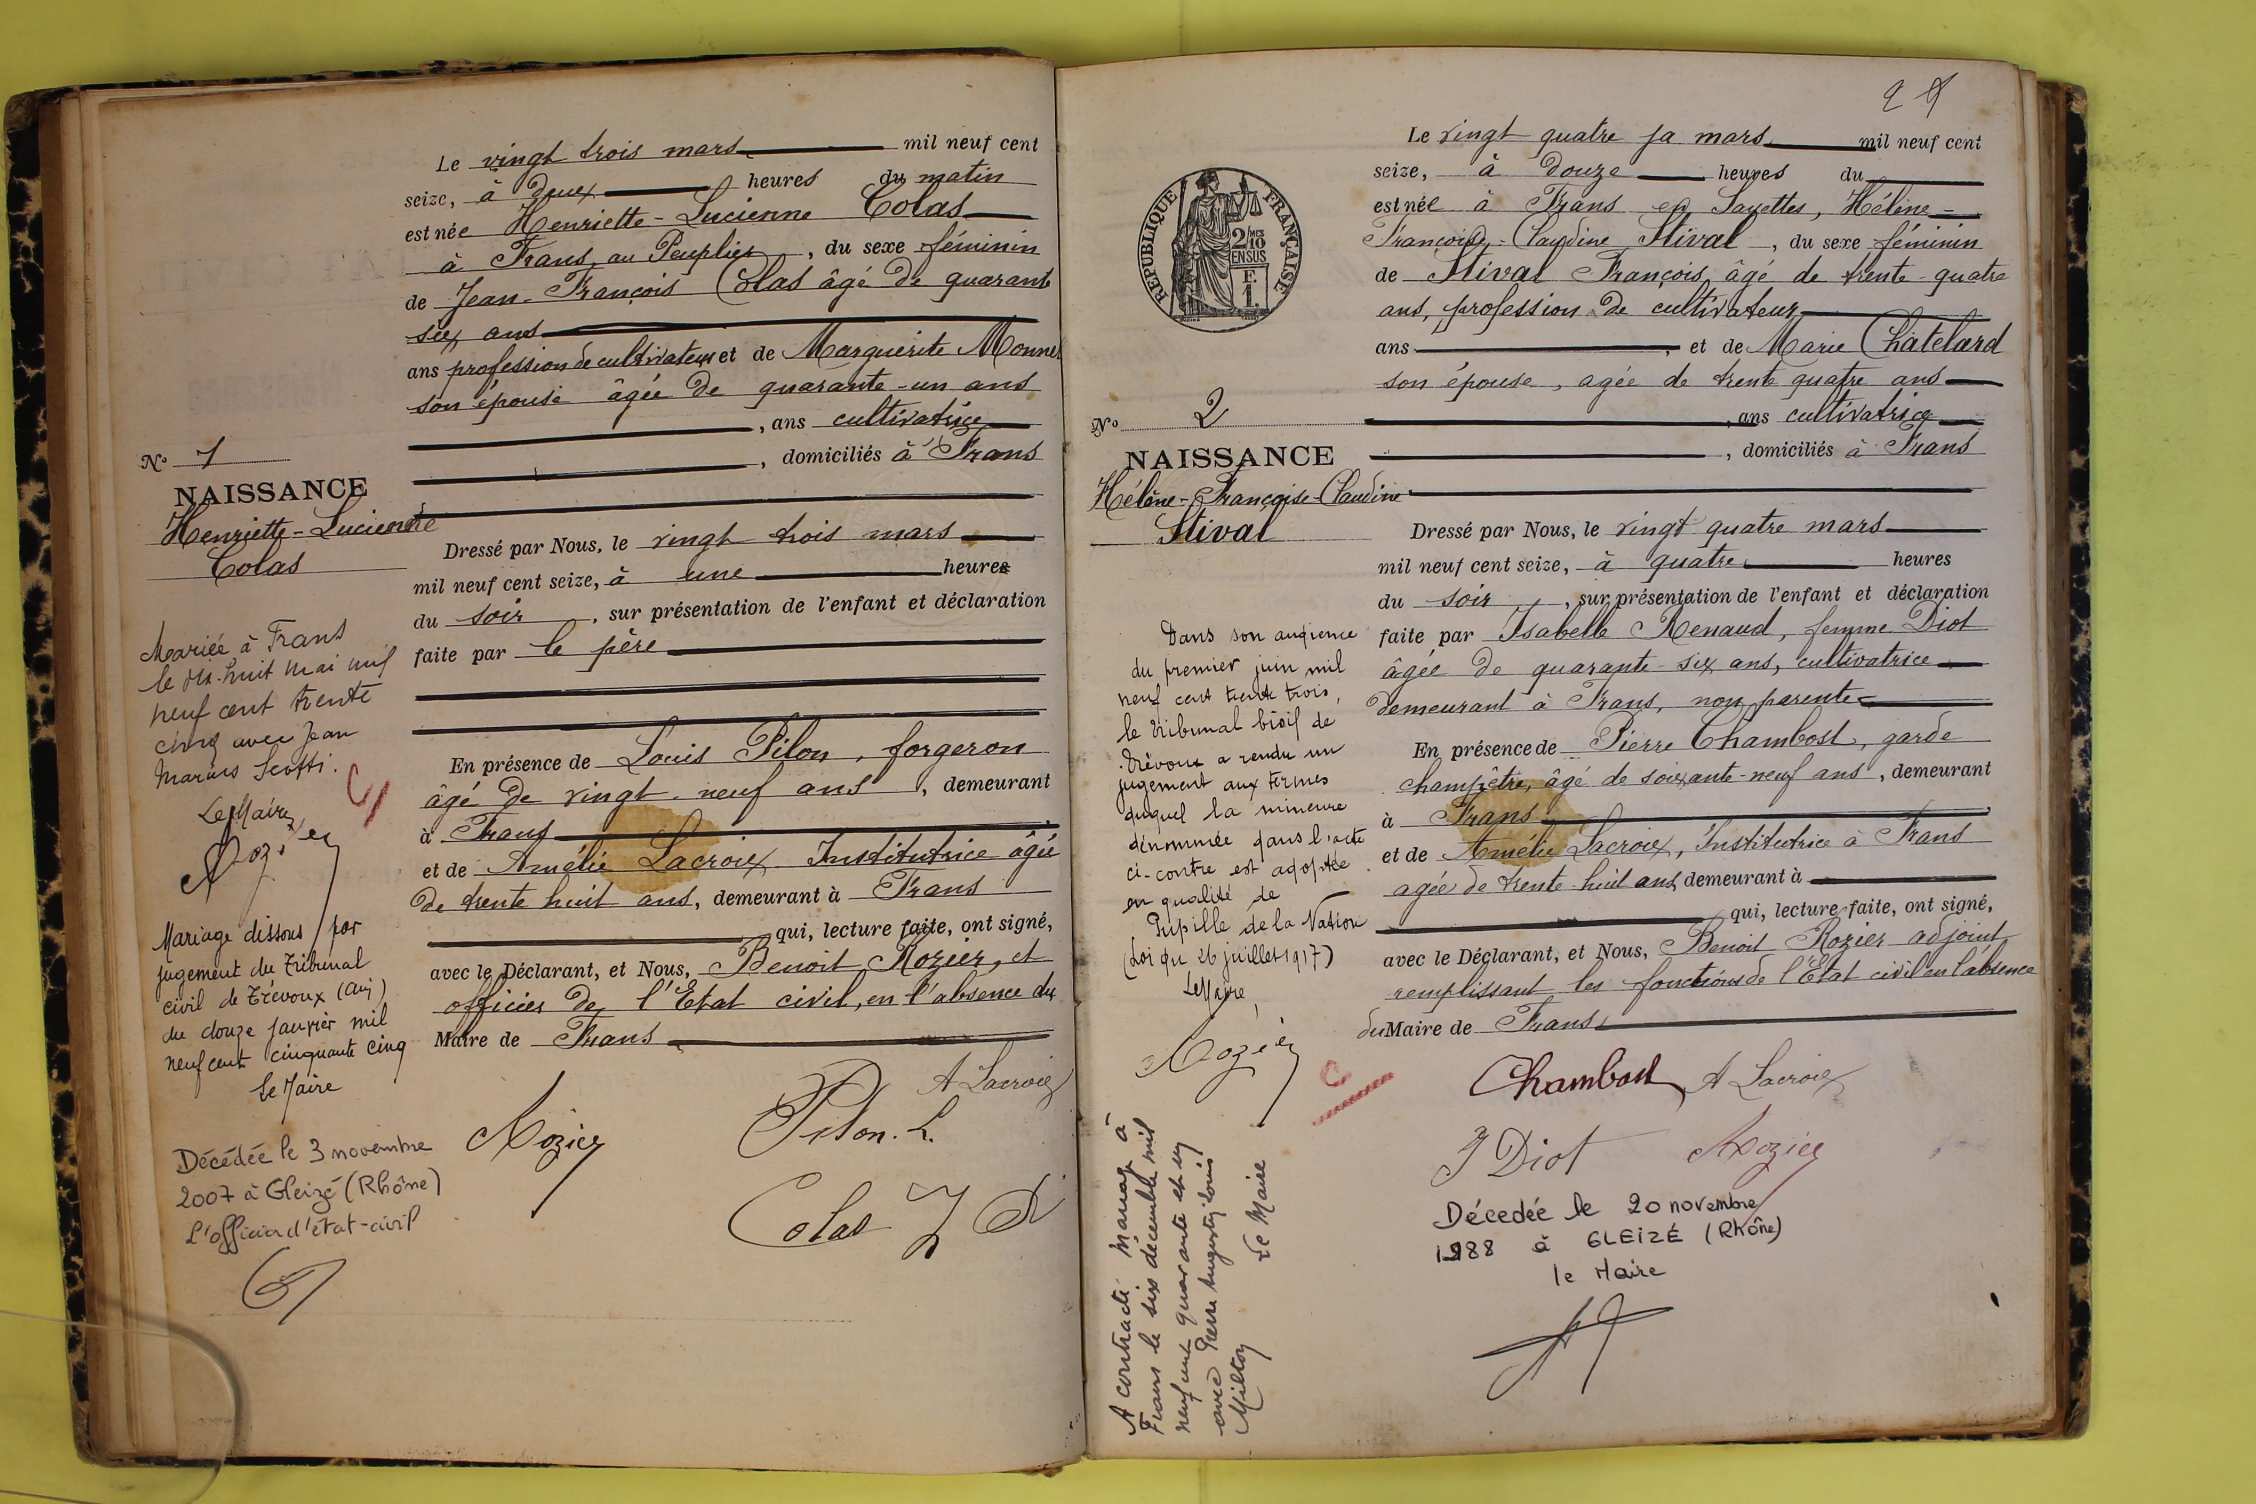 Le vingt trois mars mil neuf cent
seize, à deux heures du matin
est née Henriette-Lucienne Colas
à Frans, au Peuplier, du sexe féminin
de Jean-François Colas âgé de quarante
six ans
ans profession de cultivateur et de Marguerite Monne
son épouse âgée de quarante-un ans
, ans cultivatrice
, domiciliés à Frans
N° 1
NAISSANCE
Henriette-Lucienne
Colas
Dressé par Nous, le vingt trois mars
mil neuf cent seize, à une heures
du soir, sur présentation de l'enfant et déclaration
faite par le père
En présence de Louis Pilon, forgeron
âgé de vingt-neuf ans, demeurant
à Frans
et de Amélie Lacroix Institutrice âgée
de trente huit ans, demeurant à Frans
qui, lecture faite, ont signé,
avec le Déclarant, et Nous, Benoit Rozier, et
officier de l'Etat civil, en l'absence du
Maire de Frans
Mariée à Frans
le dix-huit mai mil
neuf cent trente
cinq avec Jean
Marius Scotti.
Le Maire
Rozier
Mariage dissous par
jugement du Tribunal
civil de Trévoux (Ain)
du douze janvier mil
neuf cent cinquante cinq
Le Maire
Décédée le 3 novembre
2007 à Gleizé (Rhône)
L'officier d'état-civil
A Lacroix
Rozier
Pilon. L.
Colas J
Le vingt quatre mars mil neuf cent
seize, à douze heures du
est née à Frans en Sayettes, Hélène-
Françoise-Claudine Stival, du sexe féminin
de Stival François, âgé de trente-quatre
ans, profession de cultivateur
ans, et de Marie Chatelard
son épouse, agée de trente quatre ans
, ans cultivatrice
, domiciliés à Frans
RÉPUBLIQUE FRANÇAISE
2/10
EN SUS
F.
1.
N° 2
NAISSANCE
Hélène-Françoise-Claudine
Stival
Dressé par Nous, le vingt quatre mars
mil neuf cent seize, à quatre heures
du soir, sur présentation de l'enfant et déclaration
faite par Isabelle Renaud, femme Diot
âgée de quarante-six ans, cultivatrice
demeurant à Frans, non parente
En présence de Pierre Chambost, garde
champêtre, âgé de soixante-neuf ans, demeurant
à Frans
et de Amélie Lacroix, Institutrice à Frans
agée de trente-huit ans, demeurant à
qui, lecture faite, ont signé,
avec le Déclarant, et Nous, Benoit Rozier adjoint
remplissant les fonctions de l'Etat civil en l'absence
du Maire de Frans
Dans son audience
du premier juin mil
neuf cent trente trois,
le tribunal civil de
Trévoux a rendu un
jugement aux termes
duquel la mineure
dénommée dans l'acte
ci-contre est adoptée
en qualité de
Pupille de la Nation
(Loi du 26 juillet 1917)
Le Maire,
Rozier
A contracté mariage à
Frans le six décembre mil
neuf cent quarante et un
avec Pierre Auguste Louis
Milton Le Maire
Chambost A Lacroix
J Diot Rozier
Décedée le 20 novembre
1988 à GLEIZÉ (Rhône)
le Maire